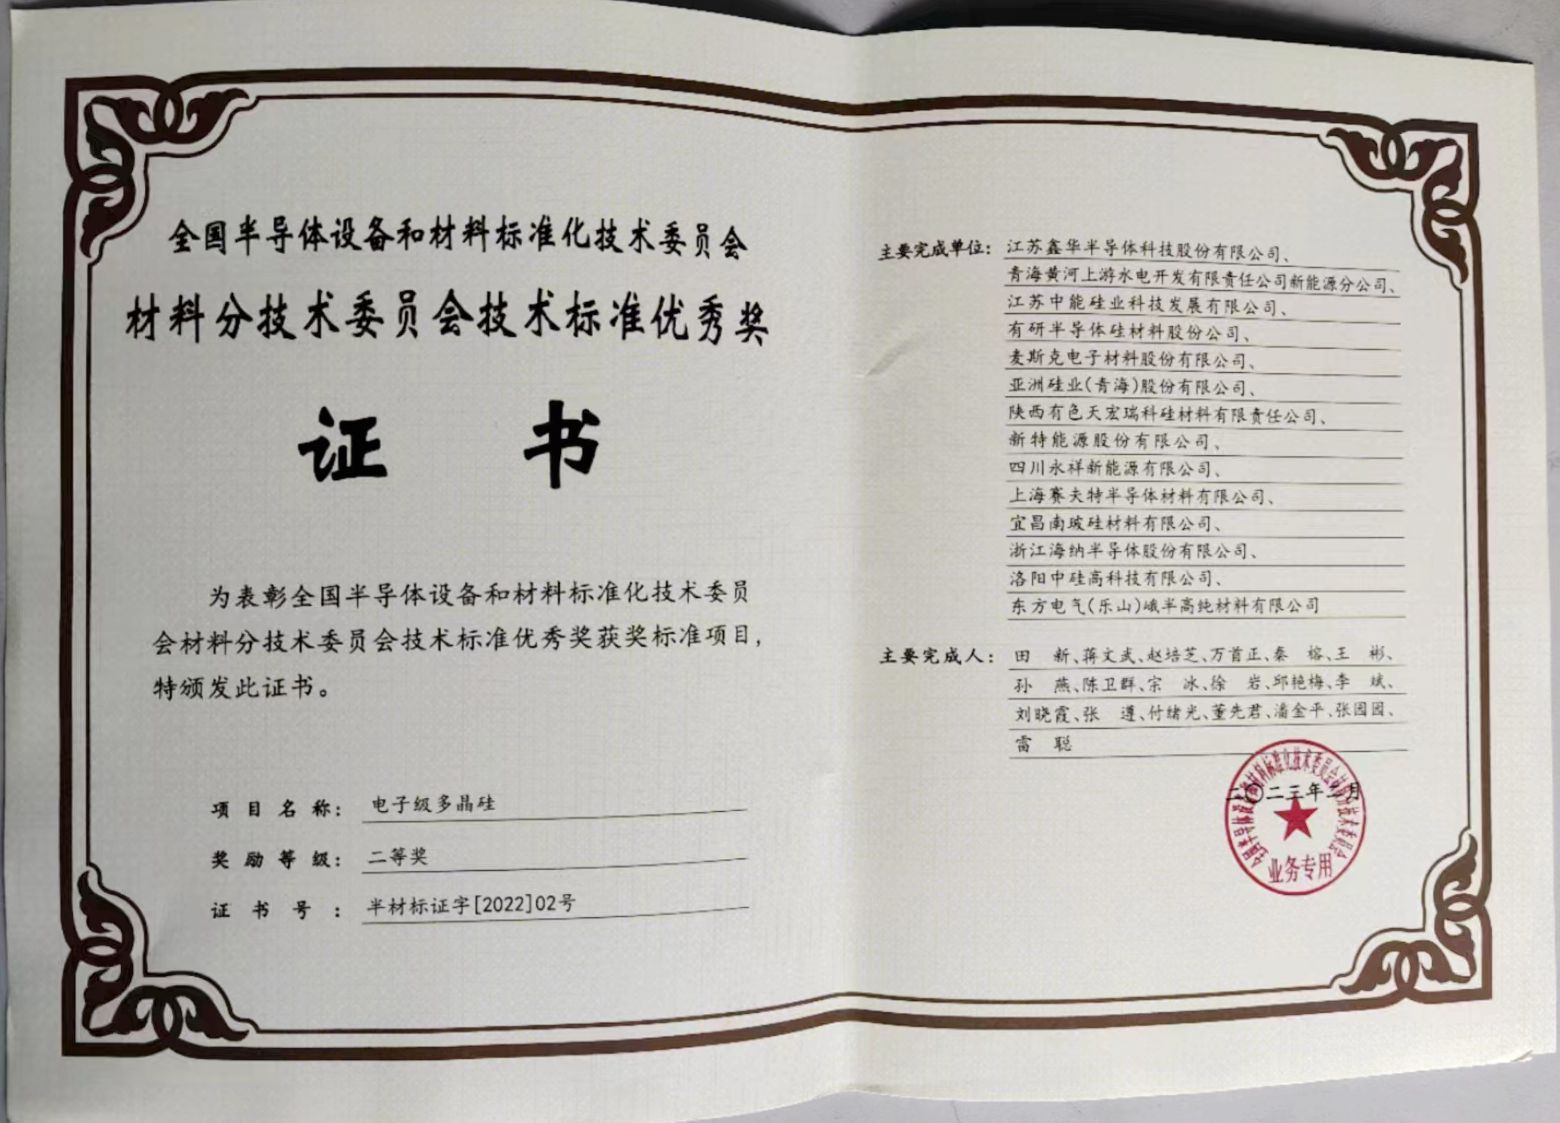 全国半导体设备和材料标准化技术委员会
材料分技术委员会技术标准优秀奖
证 书
为表彰全国半导体设备和材料标准化技术委员
会材料分技术委员会技术标准优秀奖获奖标准项目，
特颁发此证书。
项目名称： 电子级多晶硅
奖励等级： 二等奖
证书号： 半材标证字[2022]02号
主要完成单位： 江苏鑫华半导体科技股份有限公司、
青海黄河上游水电开发有限责任公司新能源分公司、
江苏中能硅业科技发展有限公司、
有研半导体硅材料股份公司、
麦斯克电子材料股份有限公司、
亚洲硅业(青海)股份有限公司、
陕西有色天宏瑞科硅材料有限责任公司、
新特能源股份有限公司、
四川永祥新能源有限公司、
上海赛夫特半导体材料有限公司、
宜昌南玻硅材料有限公司、
浙江海纳半导体股份有限公司、
洛阳中硅高科技有限公司、
东方电气(乐山)峨半高纯材料有限公司
主要完成人： 田 新、蒋文武、赵培芝、万首正、秦 榕、王 彬、
孙 燕、陈卫群、宗 冰、徐 岩、邱艳梅、李 斌、
刘晓霞、张 遵、付绪光、董先君、潘金平、张园园、
雷 聪
二〇二三年 月
全国半导体设备和材料标准化技术委员会材料分技术委员会
业务专用